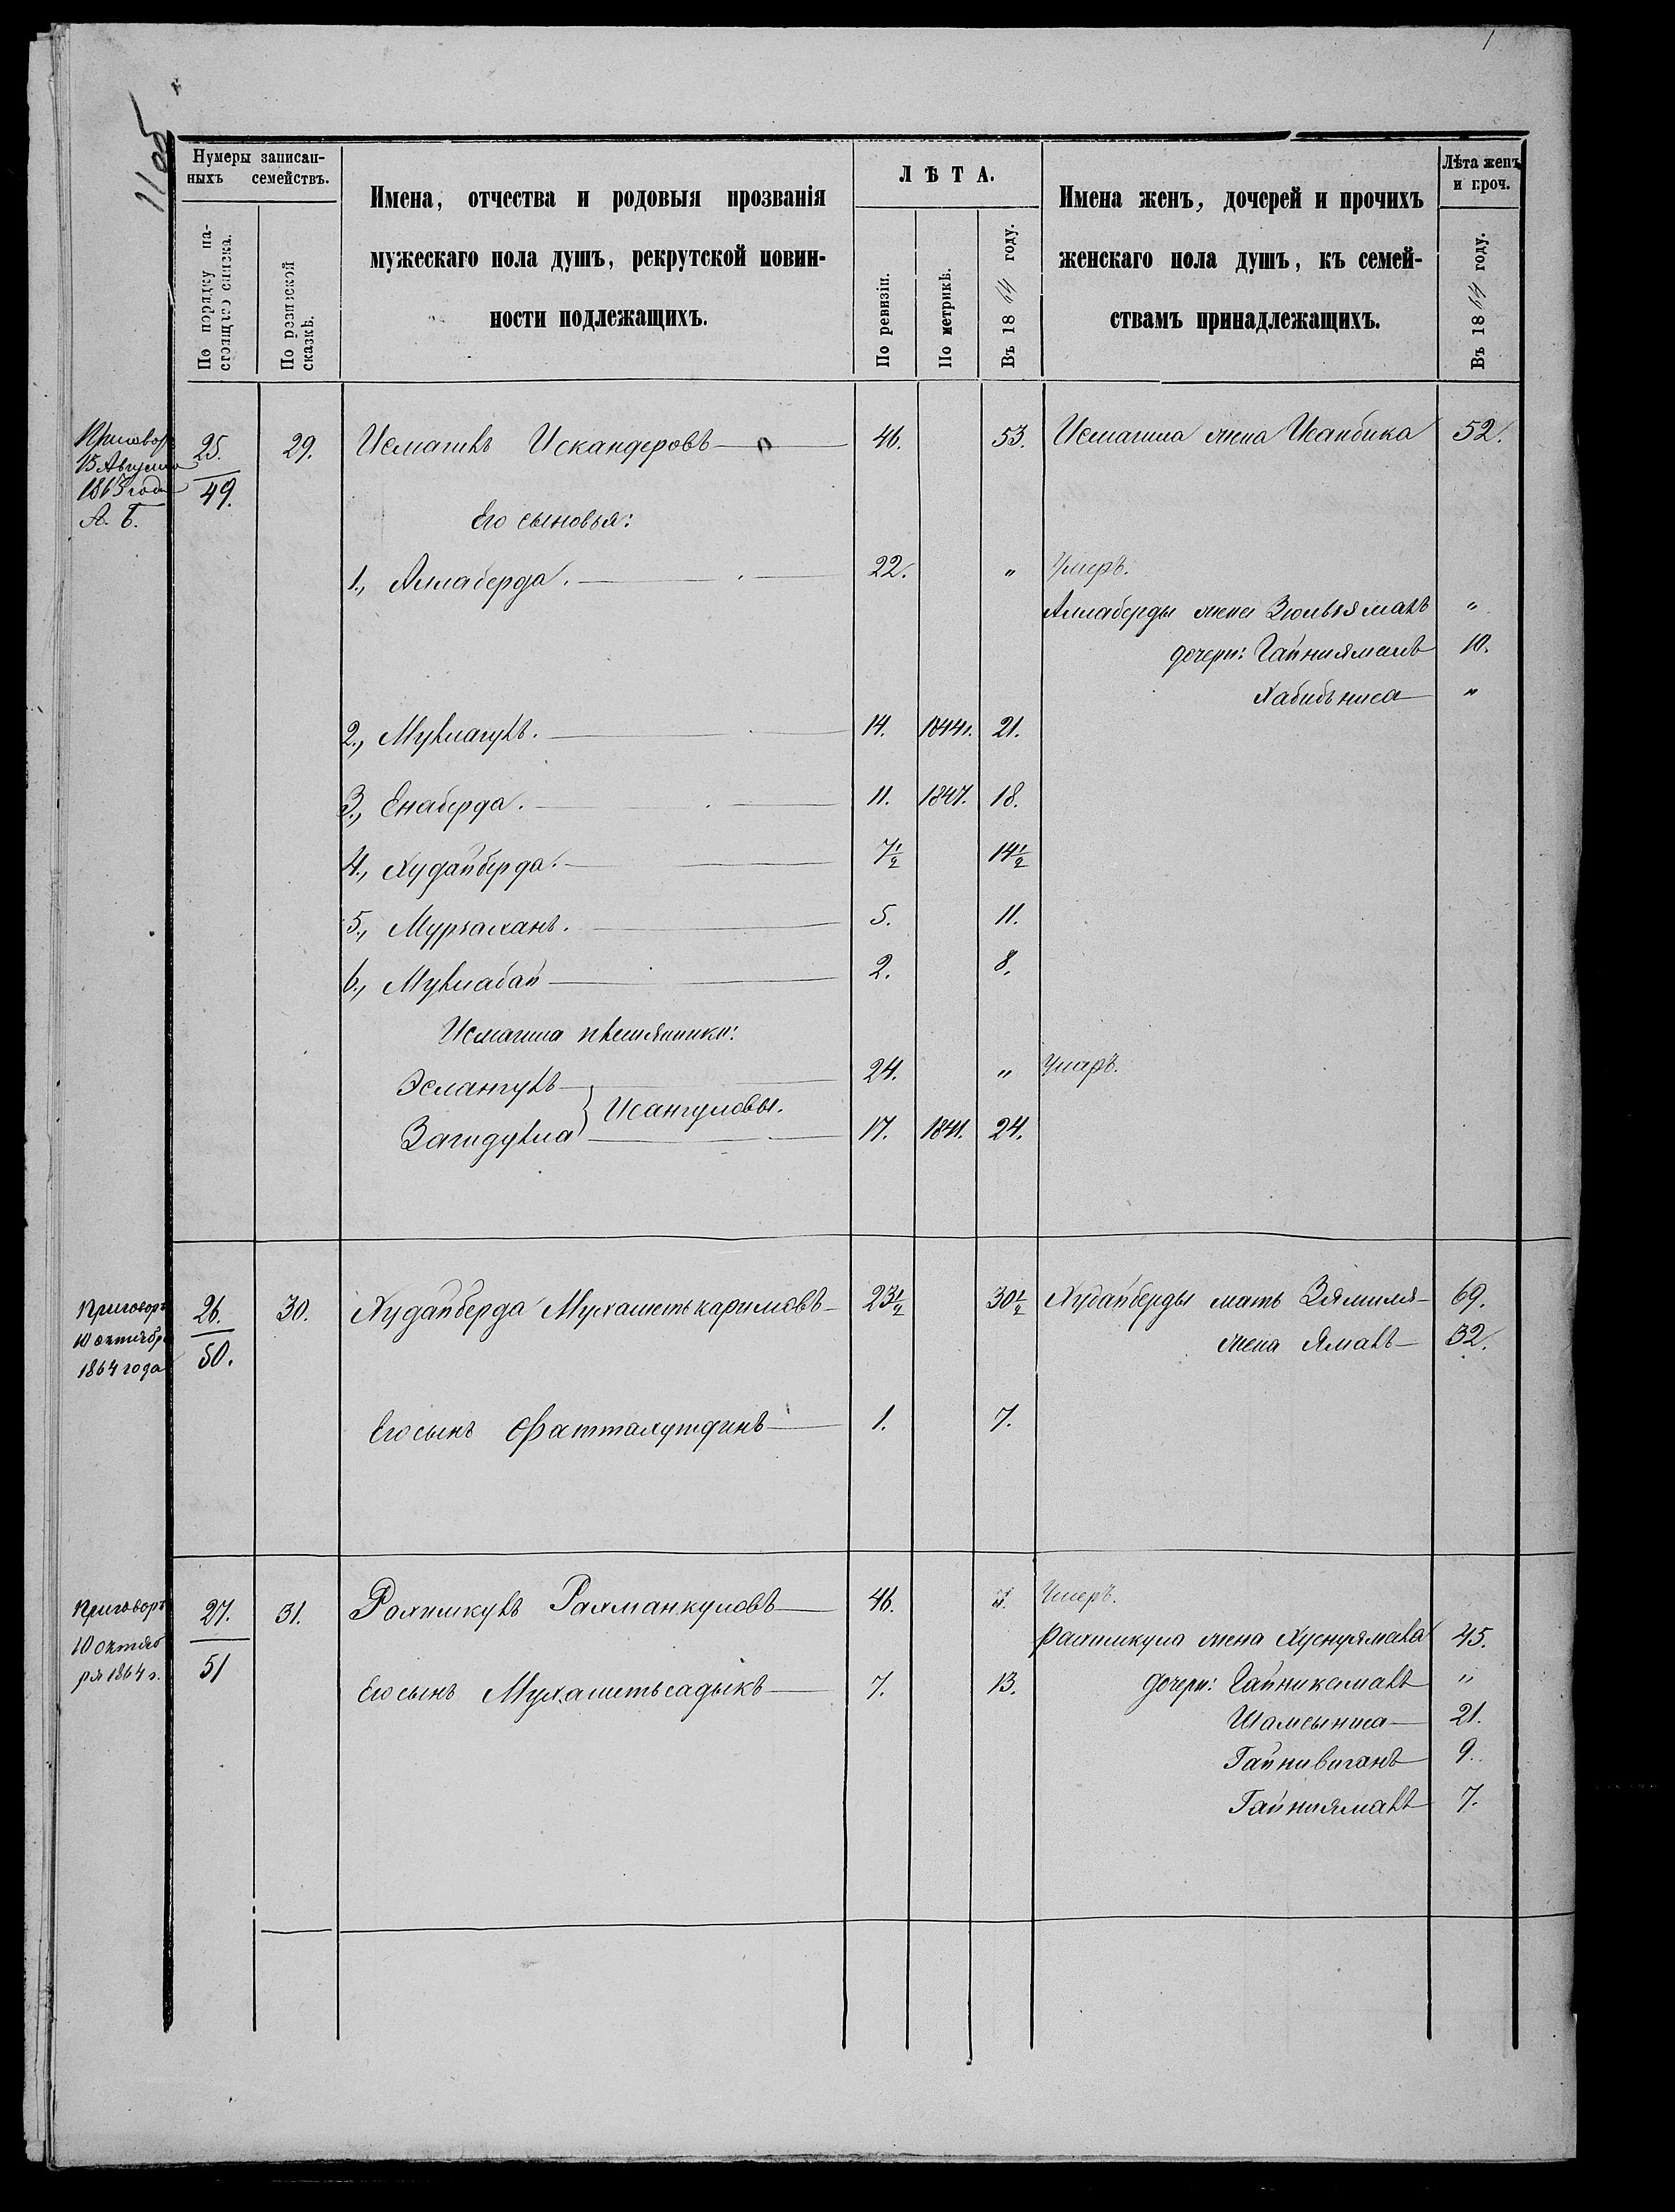 1105
Нумеры записан-
ныхъ семействъ.
По порядку на-
стоящаго списка.
По ревизской
сказкѣ.
Имена, отчества и родовыя прозванія
мужескаго пола душъ, рекрутской повин-
ности подлежащихъ.
ЛѢТА.
По ревизіи.
По метрикѣ.
Въ 1864 году.
Имена женъ, дочерей и прочихъ
женскаго пола душъ, къ семей-
ствамъ принадлежащихъ.
Лѣта женъ
и проч.
Въ 1864 году.
Приговоръ
15 Августа
1863 года
А. Б.
25. 29. Исмагилъ Искандеровъ 46. 53. Исмагила жена Исанбика 52.
49.
Его сыновья:
1., Аллаберда. 22. " Умеръ.
Аллаберды жена Зюльямалъ "
дочери: Гайниямалъ 10.
Хабибъниса "
2., Муллагулъ. 14. 1844. 21.
3., Енаберда. 11. 1847. 18.
4., Худайберда. 7½ 14½
5., Мурзаханъ. 5. 11.
6., Муллабай 2. 8.
Исмагила племянники:
Эслангулъ 24. " Умеръ.
Исангуловы.
Загидулла 17. 1841. 24.
Приговоръ
10 октября
1864 года
26. 30. Худайберда Мухаметькаримовъ 23½ 30½ Худайберды мать Зямиля 69.
50.
жена Ямалъ 32.
Его сынъ Фатталутдинъ 1. 7.
Приговоръ
10 октяб
ря 1864 г.
27. 31. Рахмкулъ Рахманкуловъ 46. Умеръ.
51
жена Хуснуямала 45.
Его сынъ Мухаметьсадыкъ 7. 13. Дочери: Гайникамалъ "
Шамсыниса 21.
Гайнивиганъ 9.
Гайниямалъ 7.